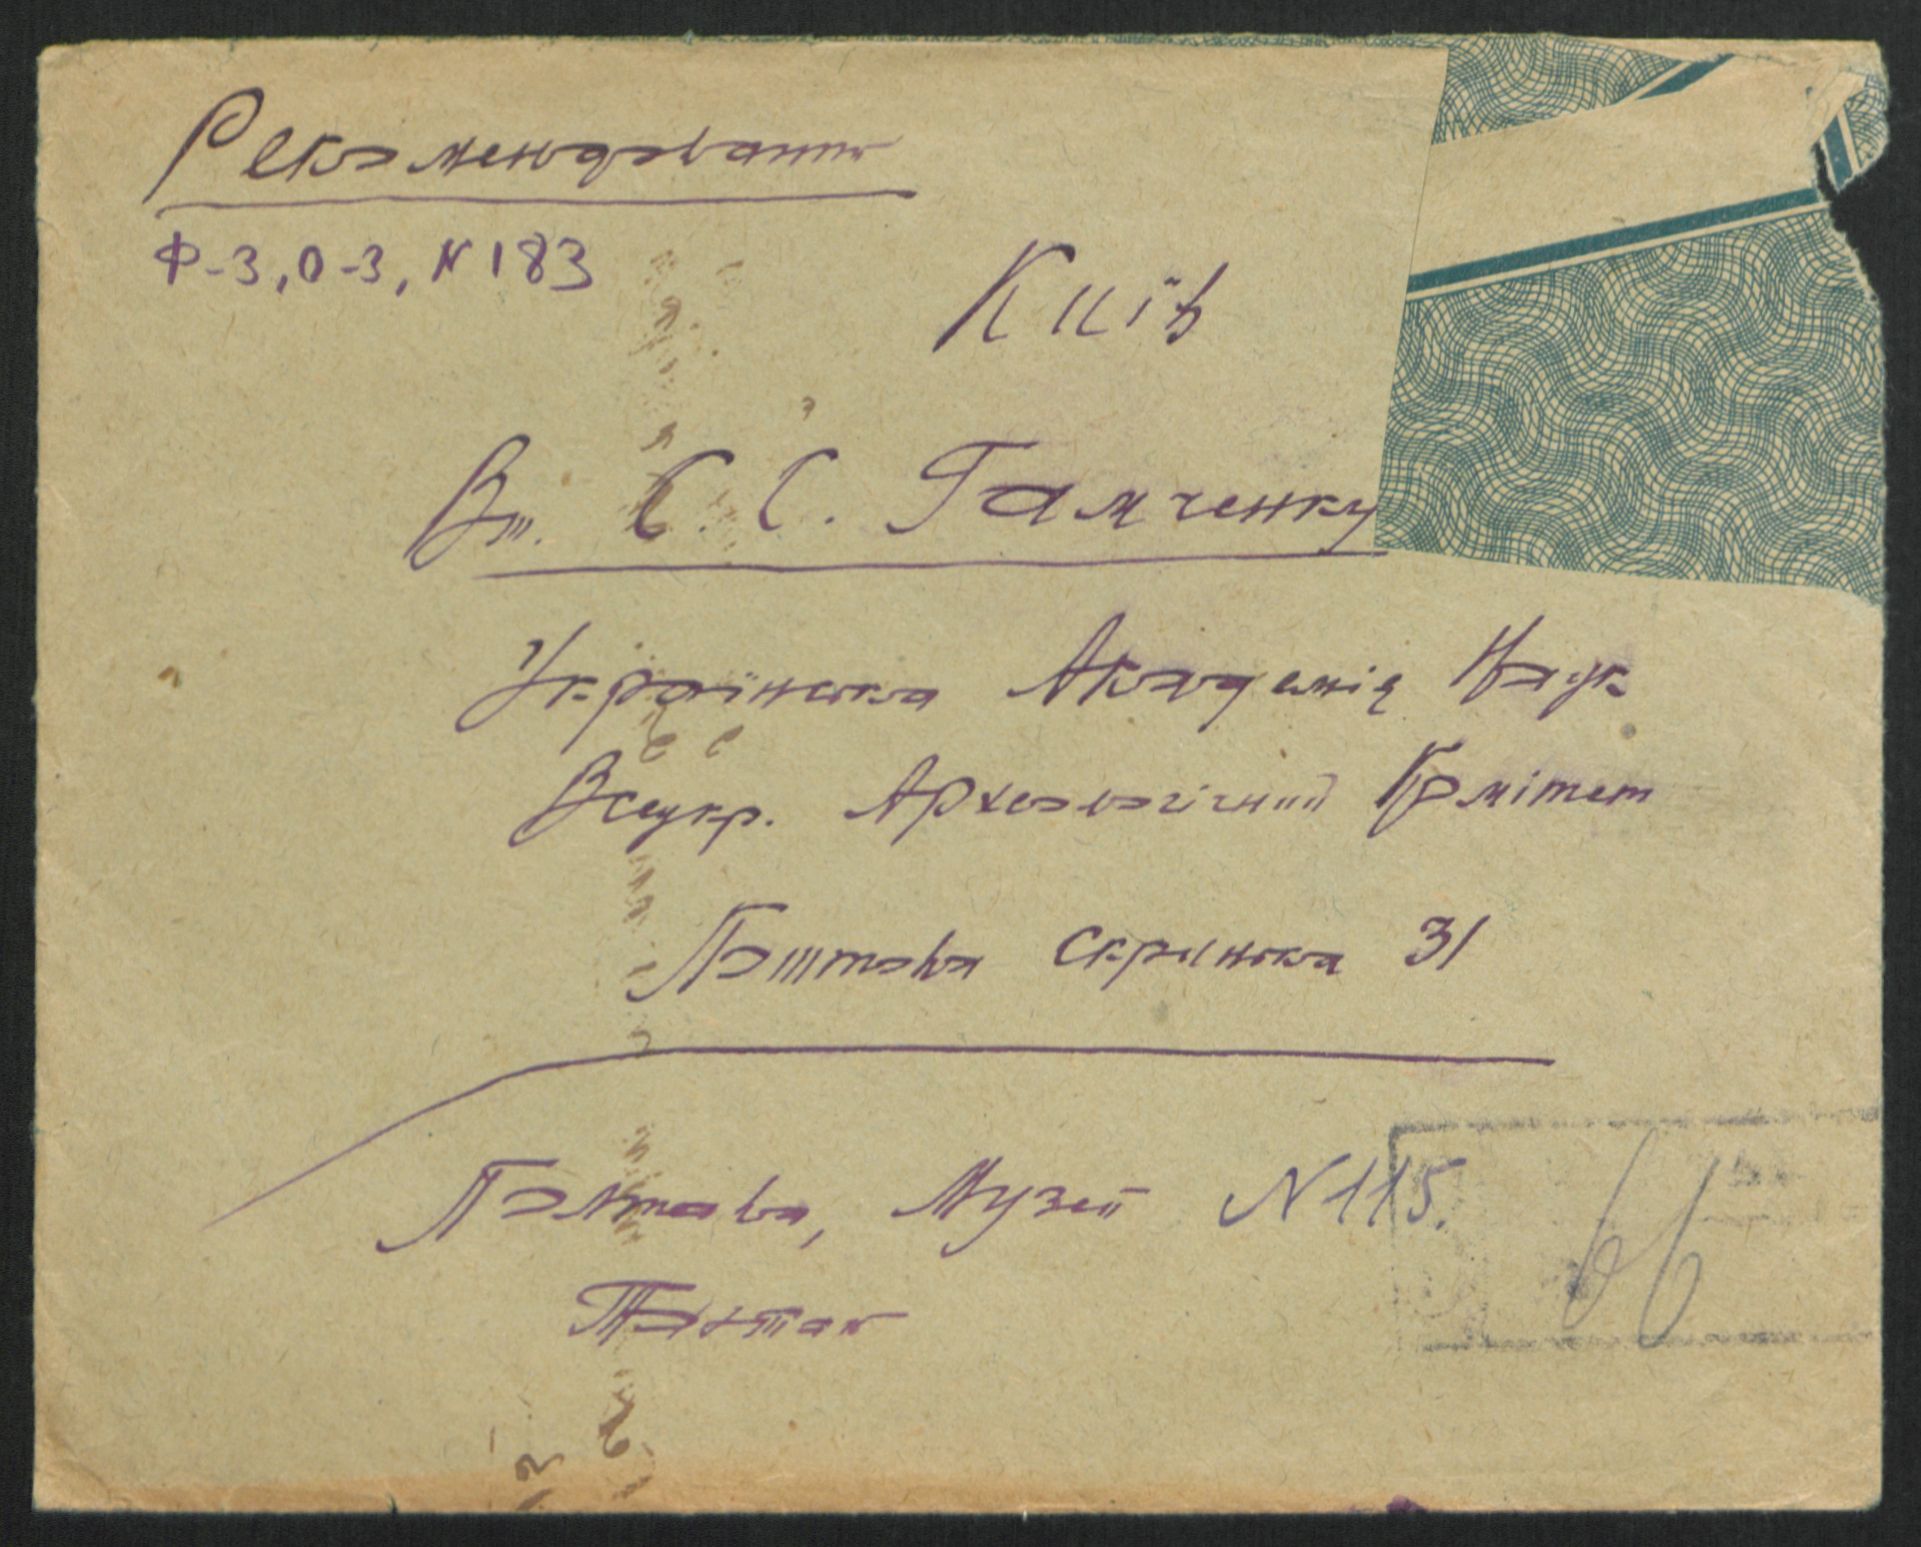 Рекомендована
Ф-3, О-3, N 183
Київ
Вп. С. С. Гамченку
Українська Академія Наук
Всеукр. Археологічний Комітет
Поштова скринька 31
Полтава, Музей N 115.